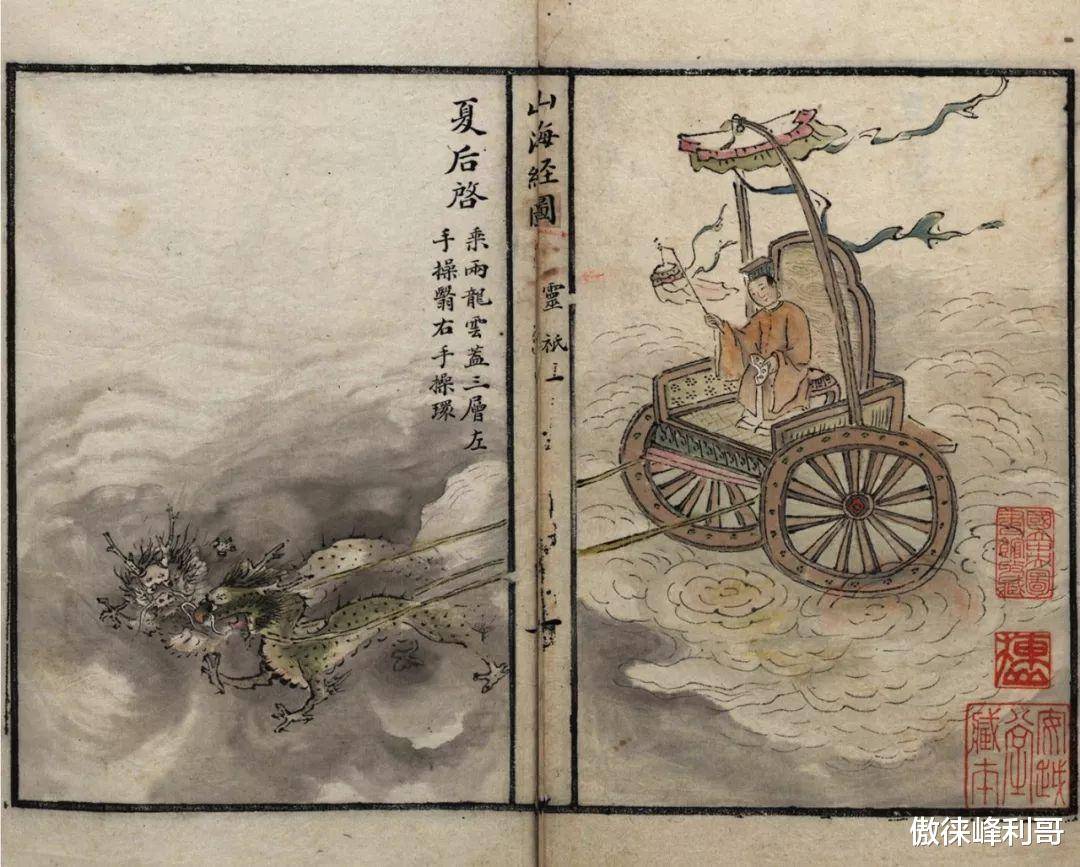 山海経圖
靈祇
夏后啓
乘兩龍雲蓋三層左
手操翳右手操環
安越堂藏本
傲徕峰利哥